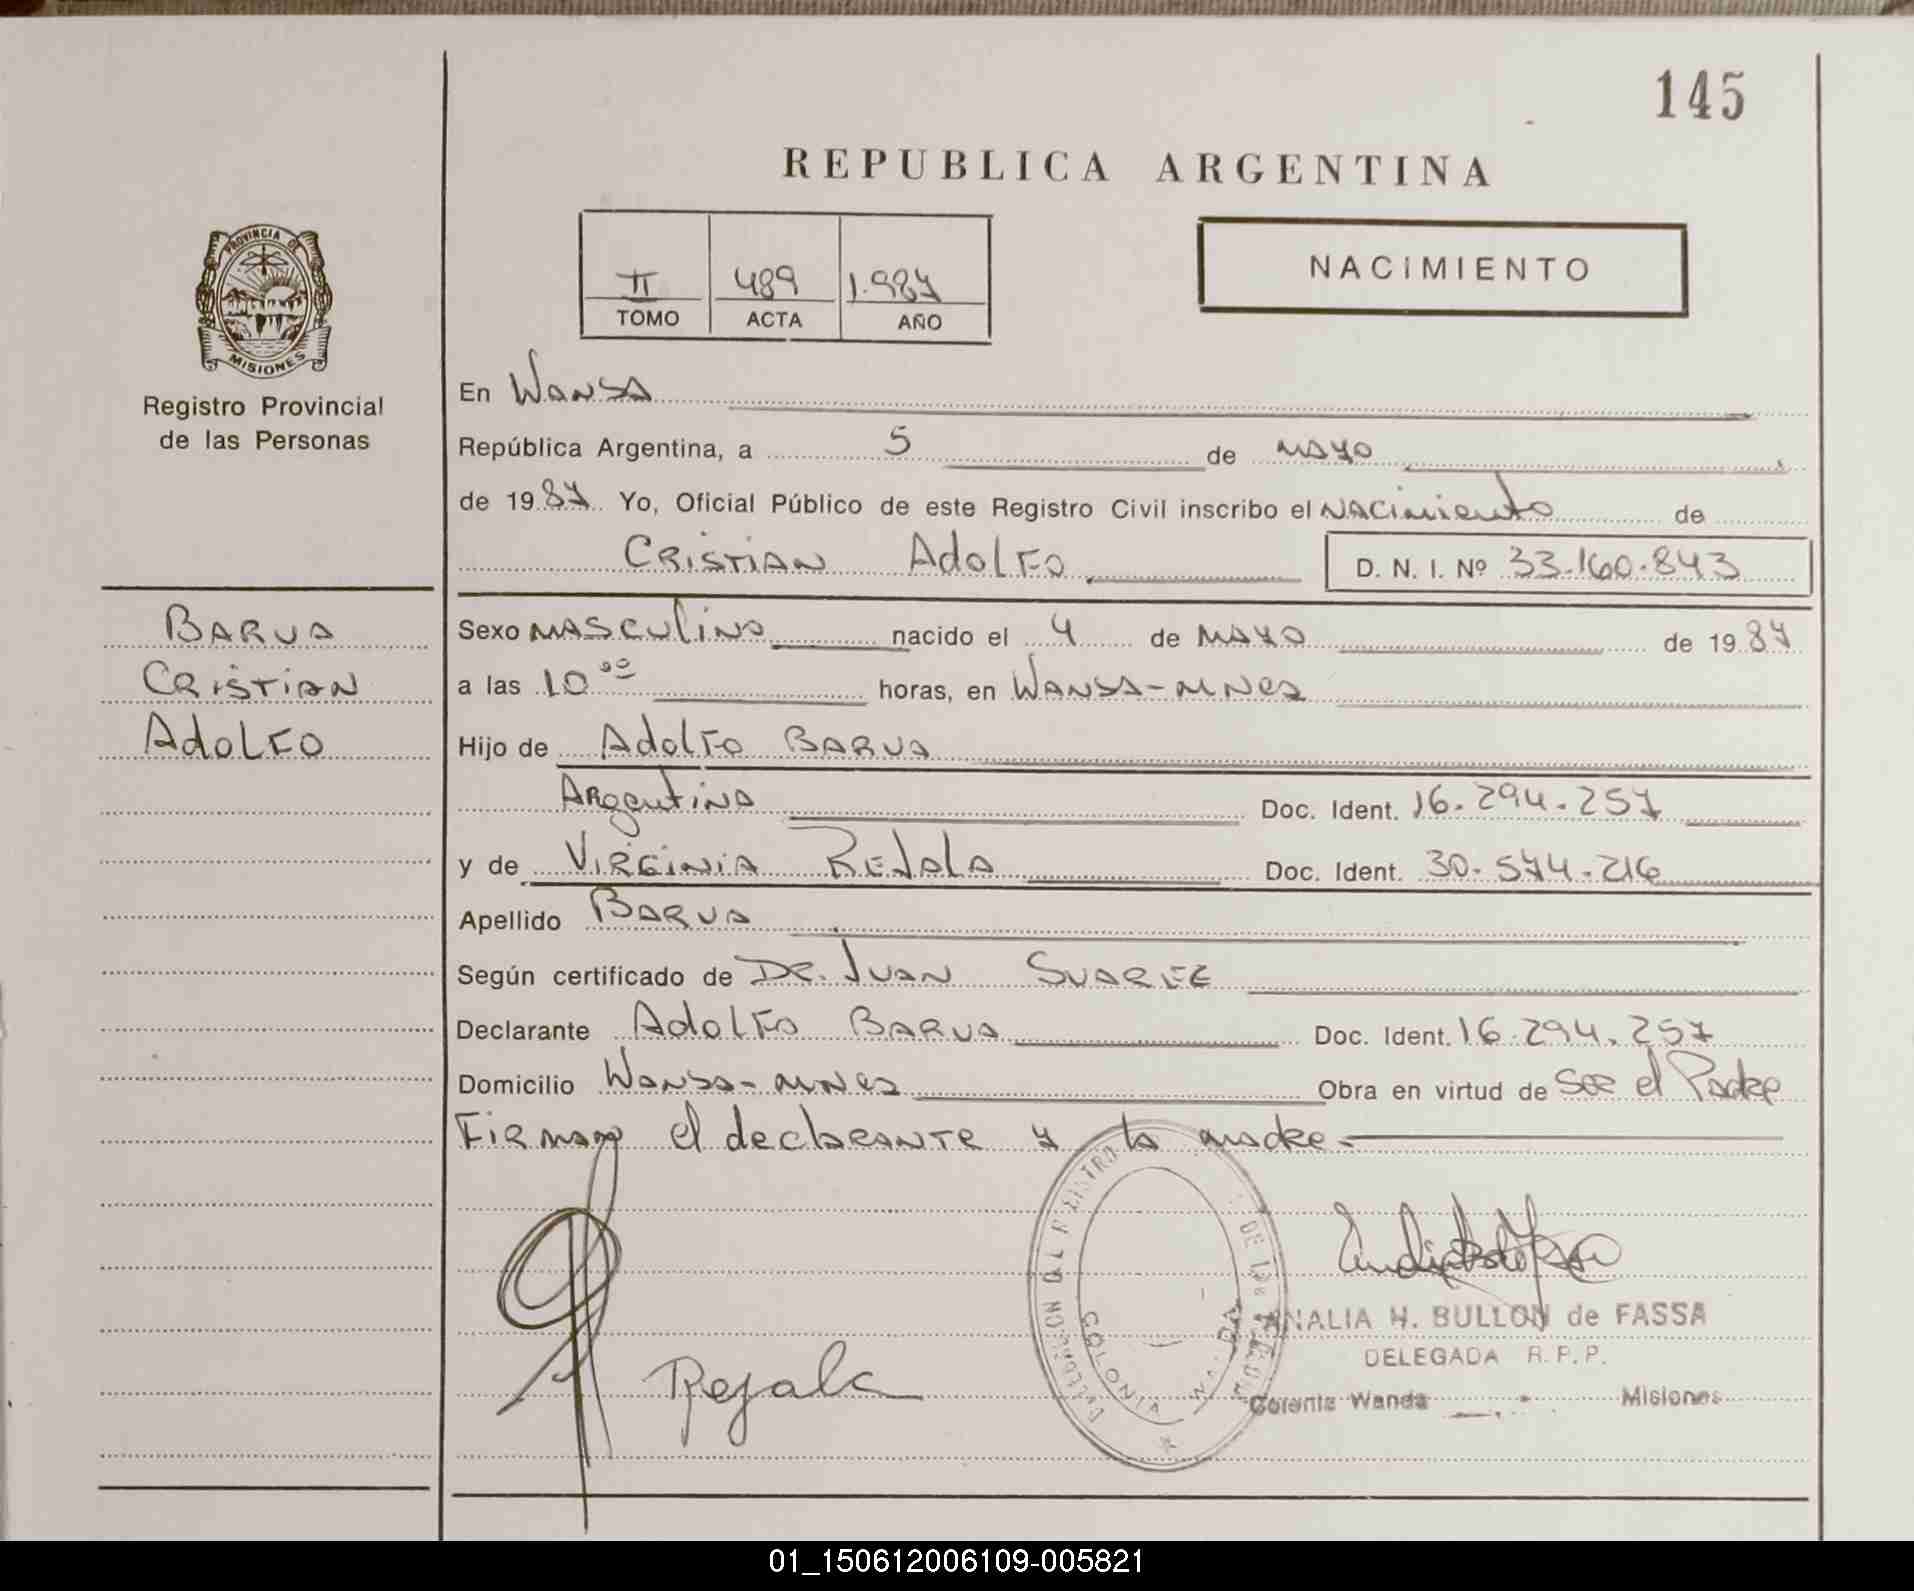 145
REPUBLICA ARGENTINA
PROVINCIA DE
MISIONES
Registro Provincial
de las Personas
II 489 1.987
TOMO ACTA AÑO
NACIMIENTO
En Wanda
República Argentina, a 5 de mayo
de 1987 Yo, Oficial Público de este Registro Civil inscribo el Nacimiento de
Cristian Adolfo D. N. I. Nº 33.160.843
Barua
Cristian
Adolfo
Sexo masculino nacido el 4 de mayo de 1987
a las 10 ºº horas, en Wanda - Mnes
Hijo de Adolfo Barua
Argentino Doc. Ident. 16.294.257
y de Virginia Rejala Doc. Ident. 30.574.216
Apellido Barua
Según certificado de Dr. Juan Suarez
Declarante Adolfo Barua Doc. Ident. 16.294.257
Domicilio Wanda - Mnes Obra en virtud de ser el Padre
Firman el declarante y la madre.-
Rejala
COLONIA WANDA
ANALIA H. BULLON de FASSA
DELEGADA R. P. P.
Colonia Wanda Misiones
01_150612006109-005821